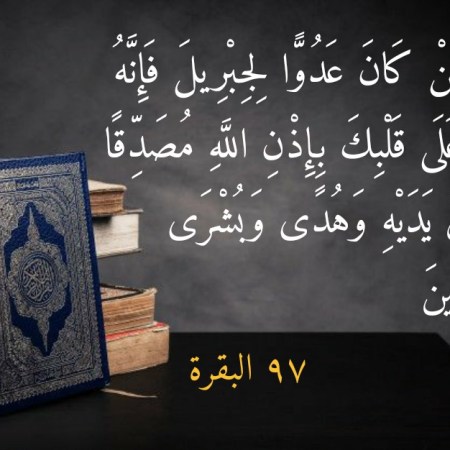 كَانَ عَدُوًّا لِجِبْرِيلَ فَإِنَّهُ
قَلْبِكَ بِإِذْنِ اللَّهِ مُصَدِّقًا
يَدَيْهِ وَهُدًى وَبُشْرَى
٩٧ البقرة